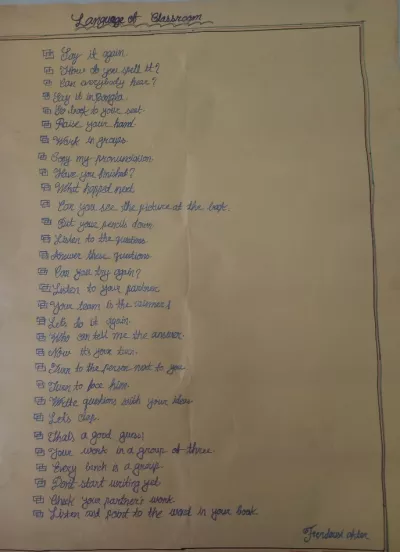 Language of Classroom
Say it again.
How do you spell it?
Can everybody hear?
Say it in Bangla.
Go back to your seat.
Raise your hand.
Work in groups.
Copy my pronunciation.
Have you finished?
What happed next.
Can you see the picture at the book.
Put your pencils down.
Listen to the questions
Answer these questions.
Can you try again?
Listen to your partner
Your team is the winners
Let's do it again.
Who can tell me the answer.
Now it's your turn.
Turn to the person next to you
Turn to face him.
Write questions with your ideas
Let's clap.
That's a good guess!
Your work in a group of three.
Every bench is a group.
Don't start writing yet
Check your partner's work.
Listen and point to the word in your book.
akter